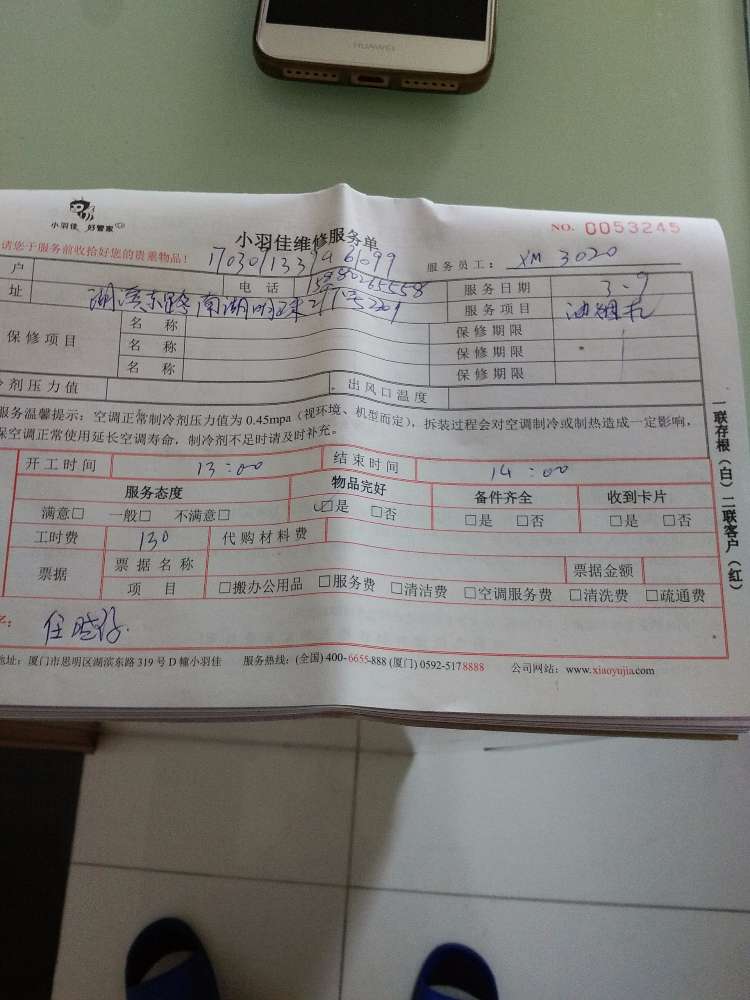 HUAWEI
小羽佳 好管家
NO. 0053245
小羽佳维修服务单
请您于服务前收拾好您的贵重物品!
服务员工: XM 3020
户 电话 服务日期 3.9
址 湖滨东路南湖明珠 服务项目 油烟机
保修项目 名称 保修期限
名称 保修期限
名称 保修期限
冷剂压力值 出风口温度
服务温馨提示: 空调正常制冷剂压力值为 0.45mpa (视环境、机型而定), 拆装过程会对空调制冷或制热造成一定影响,
保空调正常使用延长空调寿命, 制冷剂不足时请及时补充。
开工时间 13:00 结束时间 14:00
服务态度 物品完好 备件齐全 收到卡片
满意□ 一般□ 不满意□ □是 □否 □是 □否 □是 □否
工时费 130 代购材料费
票据 票据名称 票据金额
项目 □搬办公用品 □服务费 □清洁费 □空调服务费 □清洗费 □疏通费
地址: 厦门市思明区湖滨东路 319 号 D 幢小羽佳 服务热线: (全国) 400-6655-888 (厦门) 0592-5178888 公司网站: www.xiaoyujia.com
一联存根(白) 二联客户(红)